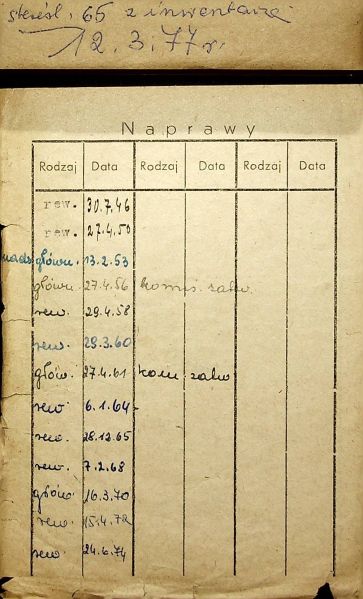 skreśl. 65 z inwentarza
12.3.77 r.
Naprawy
Rodzaj Data Rodzaj Data Rodzaj Data
rew. 30.7.46
rew. 27.4.50
nads główn. 13.2.53
główn. 27.4.56 komis.
rew. 29.4.58
rew. 29.3.60
główn. 27.4.61 kom
rew 6.1.64
rew. 28.12.65
rew. 7.2.68
główn. 16.3.70
rew. 15.4.72
rew. 24.6.74